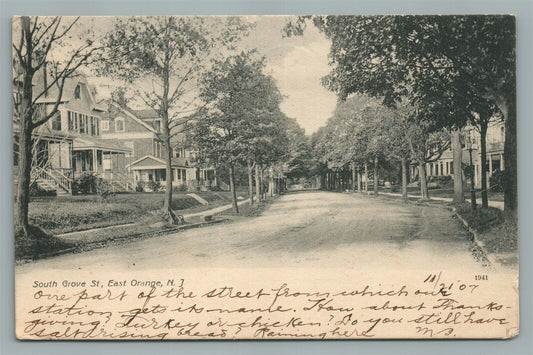 South Grove St, East Orange, N. J
1941
11/21 '07
One part of the street from which our
station gets its name. How about Thanks-
giving, Turkey or chicken? Do you still have
salt rising bread? Raining here M.S.